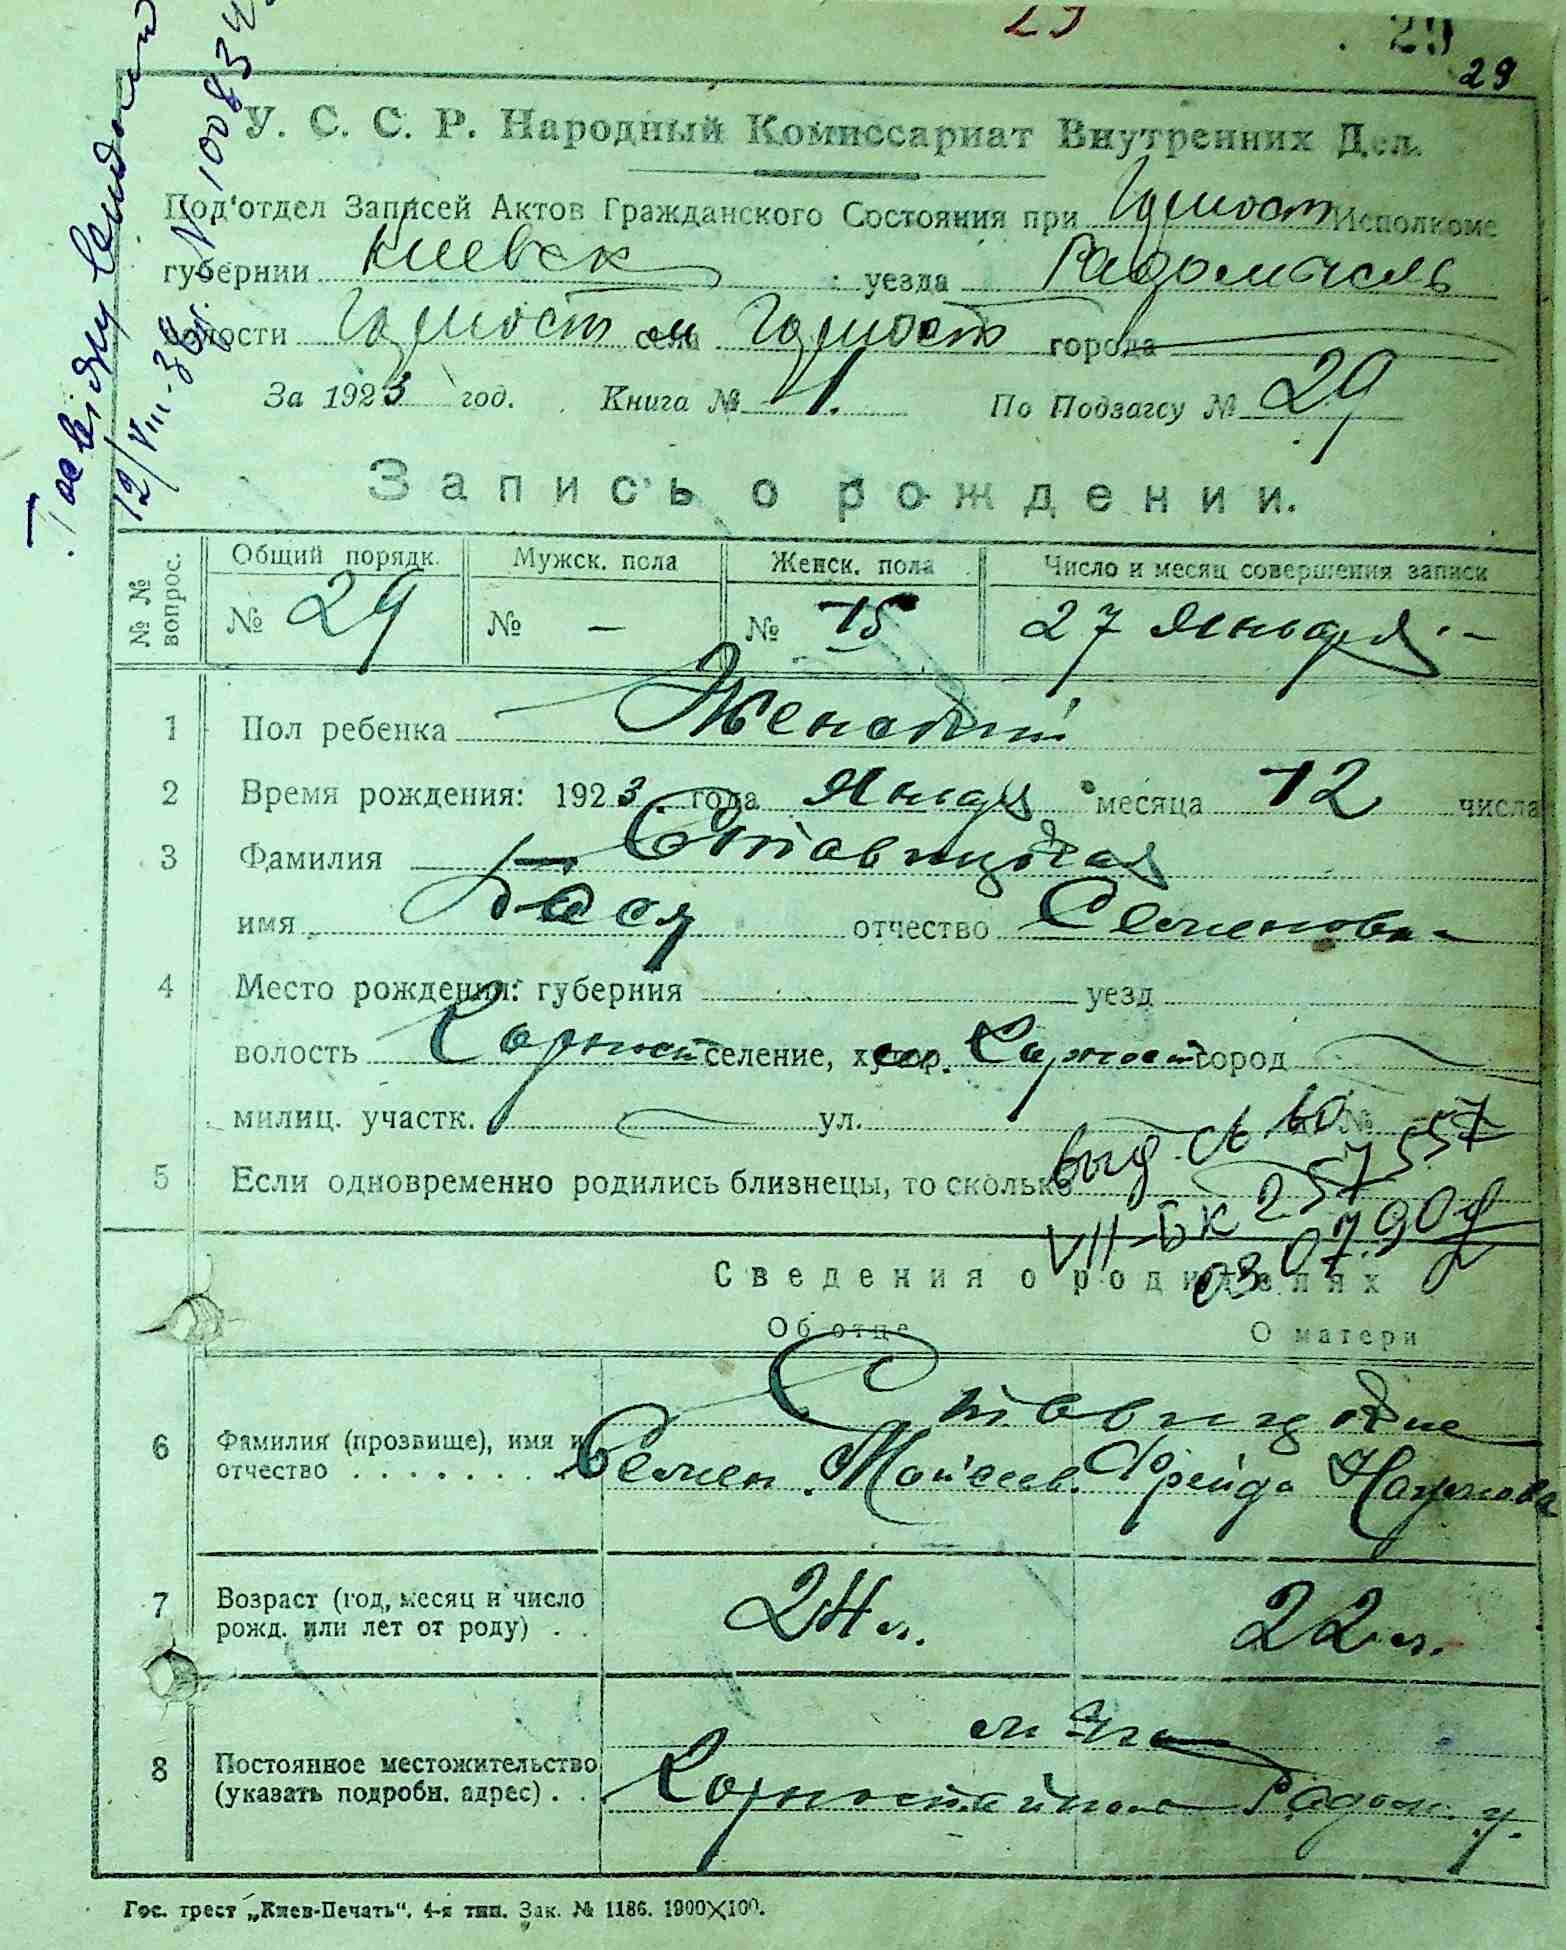 29
29
У. С. С. Р. Народный Комиссариат Внутренних Дел.
Под'отдел Записей Актов Гражданского Состояния при Исполкоме
губернии Киевск уезда Радомысль
волости м села города
За 1923 год. Книга № 1. По Подзагсу № 29
Запись о рождении.
№ № вопрос. Общий порядк. Мужск. пола Женск. пола Число и месяц совершения записи
№ 29 № – № 15 27 Января
1 Пол ребенка Женский
2 Время рождения: 1923 года Января месяца 12 числа
3 Фамилия Ставицкая
имя Бася отчество Семеновна
4 Место рождения: губерния уезд
волость Горност селение, хутор. м. Горност город
милиц. участк. ул. №
5 Если одновременно родились близнецы, то сколько
выд. св. во
VII-БК 257557
03.07.90
Сведения о родителях
Об отце О матери
Ставицкие
6 Фамилия (прозвище), имя и отчество . . . . . . . . Семен Мойсеев. Фрейда Наумова
7 Возраст (год, месяц и число рожд. или лет от роду) . . 24 л. 22 л.
8 Постоянное местожительство (указать подробн. адрес) . . м.
Горностайполь Радом. у.
Гос. трест „Киев-Печать“. 4-я тип. Зак. № 1186. 1900×100.